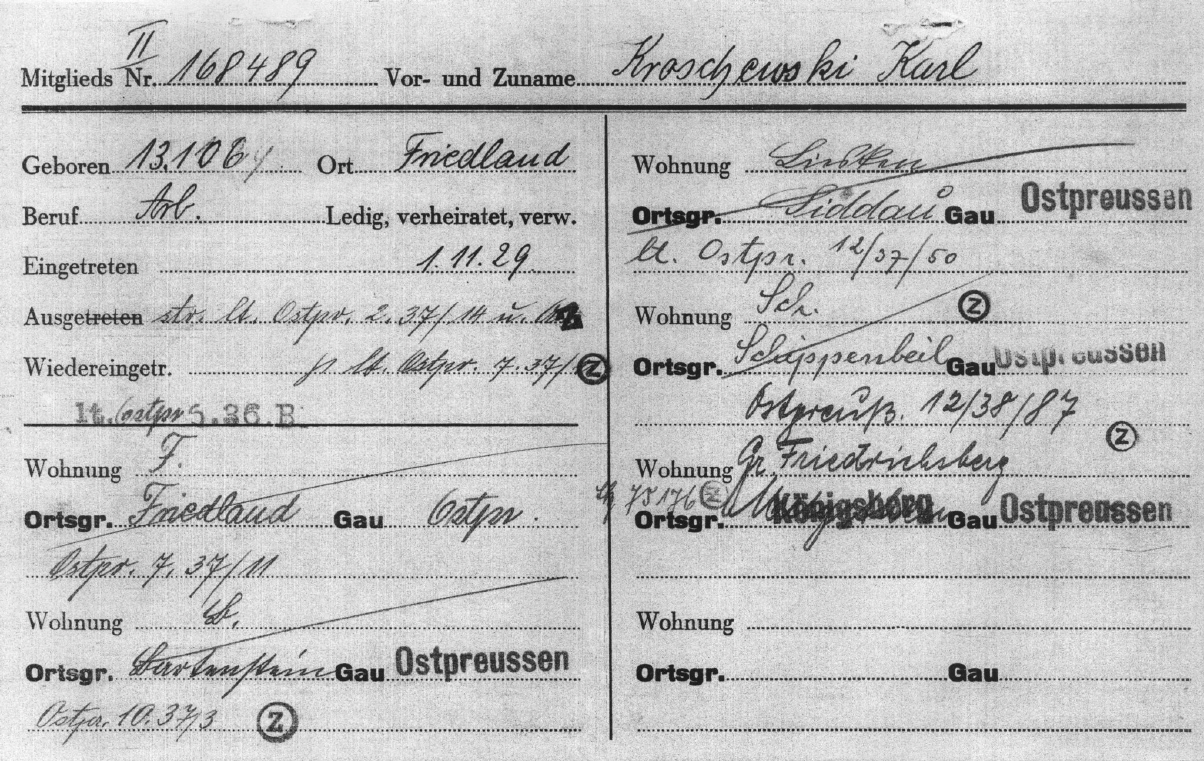 II
Mitglieds Nr. 168489 Vor- und Zuname Kroschewski Karl
Geboren 13.1.06 Ort Friedland
Beruf Arb. Ledig, verheiratet, verw.
Eingetreten 1.11.29.
Ausgetreten str. lt. Ostpr. 2.37/14 u.
Wiedereingetr. lt. Ostpr. 7.37/ Z
lt. Ostpr 5.36.B.
Wohnung F.
Ortsgr. Friedland Gau Ostpr.
Ostpr. 7.37/11
Wohnung B.
Ortsgr. Bartenstein Gau Ostpreussen
Ostpr. 10.37/3 Z
Wohnung Liesken
Ortsgr. Siddau Gau Ostpreussen
lt. Ostpr. 12/37/50
Wohnung Sch. Z
Ortsgr. Schippenbeil Gau Ostpreussen
Ostpreuß. 12/38/87
Z
Wohnung Gr. Friedrichsberg
Z Ortsgr. Königsberg Gau Ostpreussen
Wohnung
Ortsgr. Gau